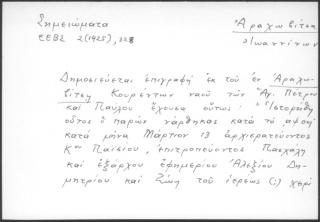 Σημειώματα
Ἀραχωβίτσα
ΕΕΒΣ 2 (1925), 328
Ἰωαννίνων
Δημοσιεύεται ἐπιγραφή ἐκ τοῦ ἐν Ἀραχω-
βίτσῃ Κουρέντων ναοῦ τῶν Ἁγ. Πέτρου
καί Παύλου ἔχουσα οὕτως: "Ἱστορήθη
οὗτος ὁ παρών νάρθηκας κατά τό αψοή
κατά μῆνα Μάρτιον 13 ἀρχιερατεύοντος
Κου Παϊσίου, ἐπιτροπεύοντος Πασχάλη
καί ἐξάρχου ἐφημερίου Ἀλεξίου Δη-
μητρίου καί Ζώη τοῦ ἱερέως (;) χειρί